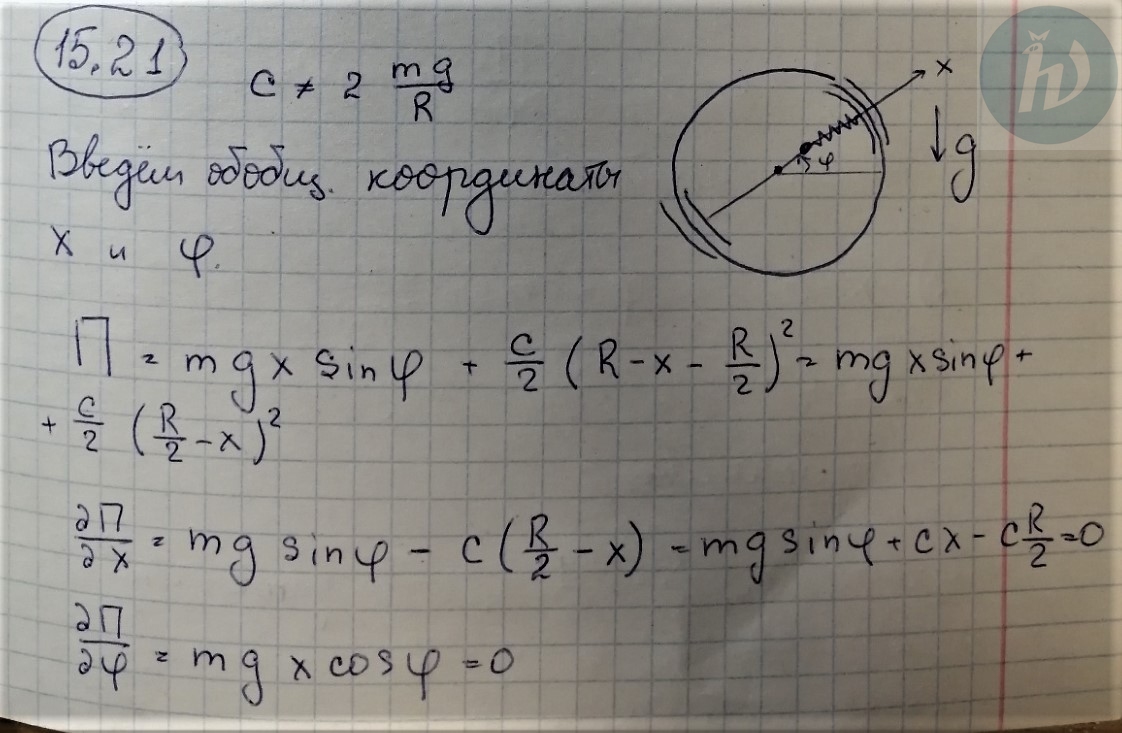 15.21
c ≠ 2 mg/R
x
g
φ
Введём обобщ. координаты
x и φ.
П = mgx sinφ + c/2 (R - x - R/2)² = mgx sinφ +
+ c/2 (R/2 - x)²
∂П/∂x = mg sinφ - c(R/2 - x) = mg sinφ + cx - cR/2 = 0
∂П/∂φ = mg x cosφ = 0